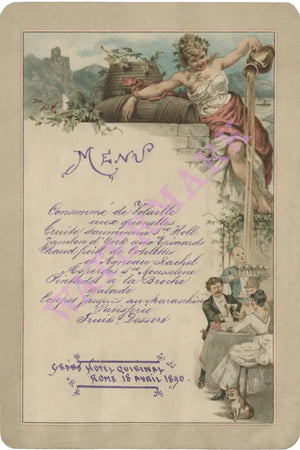 MENU
Consommé de Volaille
aux quenelles
Truite saumonée Sce Holl
Jambon d'York aux Epinards
Chaud froid de Côtelettes
d'Agneau Rachel
Asperges Sce Mousseline
Pintades à la Broche
Salade
Coupes Jacques au Maraschin
Patisserie
Fruits Dessert
GRAND HOTEL QUIRINAL
ROME 18 AVRIL 1890.